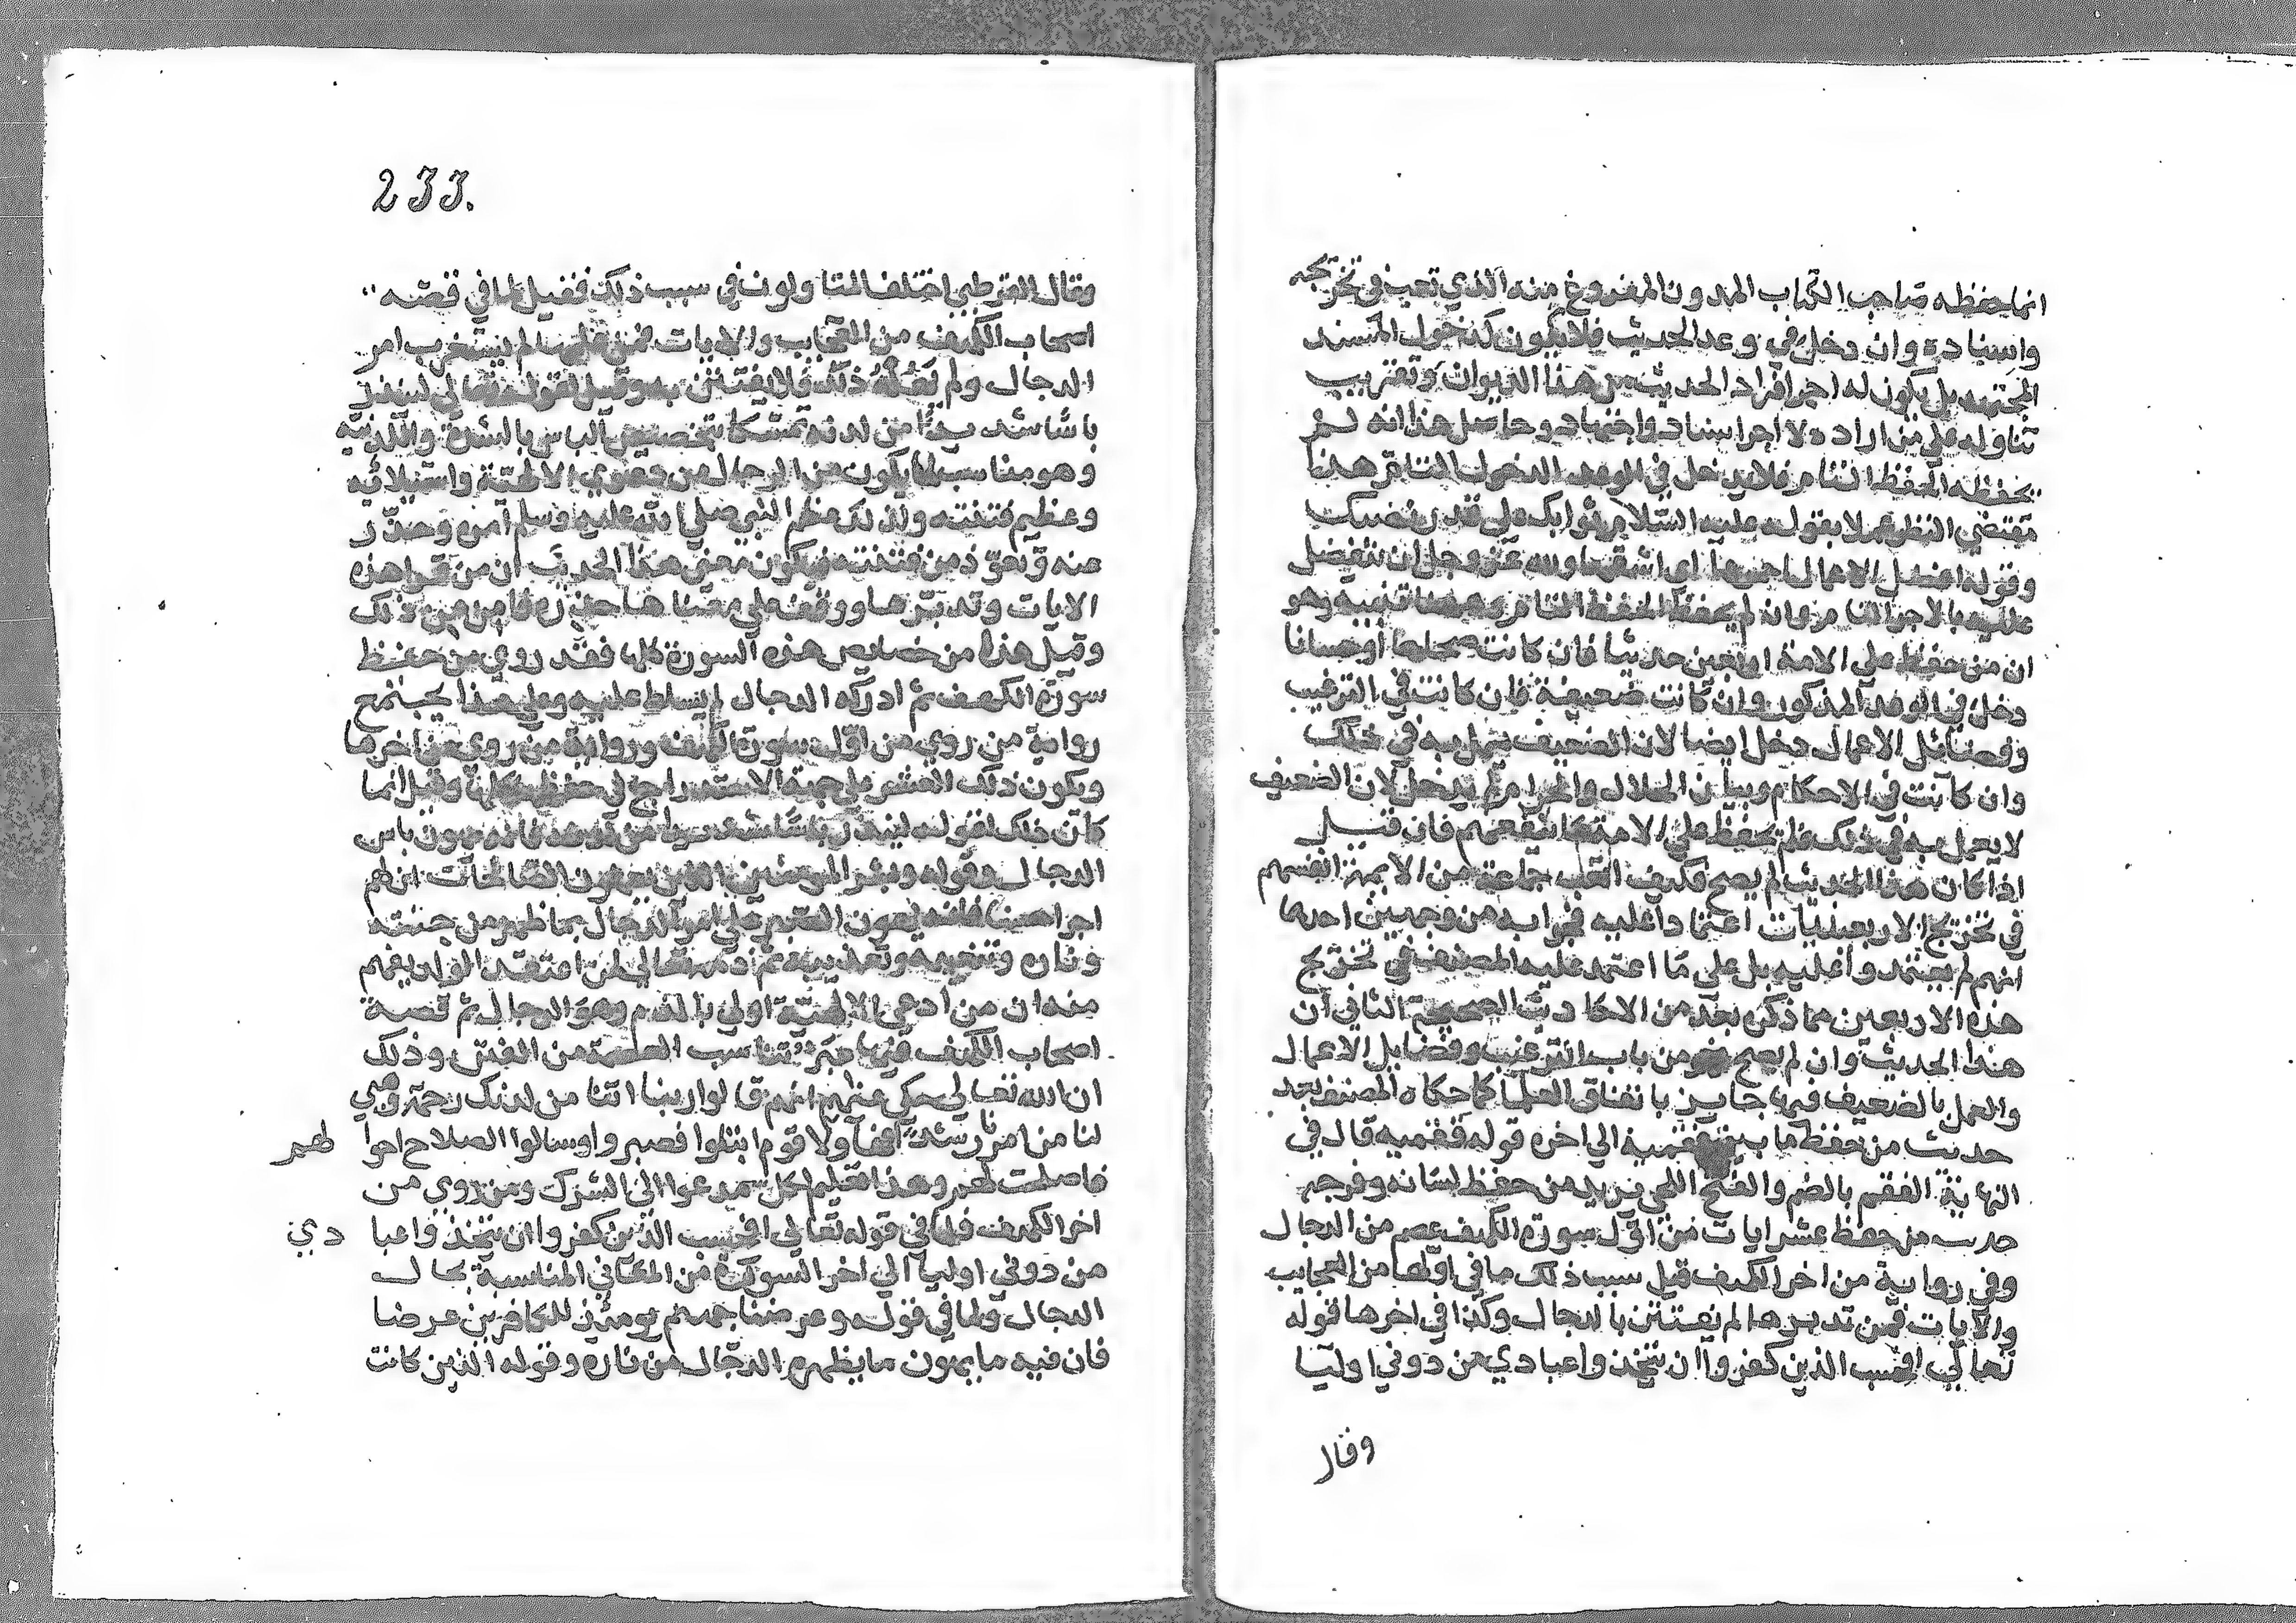 انما حفظه صاحب الكتاب المدون المفروغ منه الذي تعب في تخريجه
واسناده وان دخل في وعد الحديث فلا يكون كدخول المسند
المجتهد بل يكون له اجر افراد الحديث من هذا الديوان وتقريب
تناوله علي من اراده لا اجر اسناد واجتهاد وحاصل هذا انه لم
يحفظه الحفظ التام فلا يدخل في الوعد الدخول التام هذا
مقتضي النظر عملا بقوله عليه السلام ثوابك علي قدر نصبك
وقوله افضل الاعمال احمزها اي اشقها ولله عز وجل ان يتفضل
عليه بالاجر التام وان لم يحفظ الحفظ التام وههنا تنبيه وهو
ان من حفظ علي الامة اربعين حديثا فان كانت صحاحا او حسانا
دخل في الوعد المذكور وان كانت ضعيفة فان كانت في الترغيب
وفضائل الاعمال دخل ايضا لان الضعيف يعمل به في ذلك
وان كانت في الاحكام وبيان الحلال والحرام لم يدخل لان الضعيف
لا يعمل به في ذلك فلم يحفظ علي الامة ما ينفعهم فان قيل
اذا كان هذا الحديث لم يصح فكيف اتعب جماعة من الايمة انفسهم
في تخريج الاربعينيات اعتمادا عليه فجوابه من وجهين احدهما
انهم لم يعتمدوا عليه بل علي ما اعتمد عليه المصنف في تخريج
هذه الاربعين مما ذكره بعد من الاحاديث الصحيحة الثاني ان
هذا الحديث وان لم يصح فهو من باب الترغيب وفضايل الاعمال
والعمل بالضعيف فيها جايز باتفاق العلما كما حكاه المصنف بعد
حديث من حفظ ما بين فقميه الي اخره قوله فقميه قال في
النهاية الفقم بالضم والفتح اللحي يريد من حفظ لسانه وفرجه
حديث من حفظ عشر ايات من اول سورة الكهف عصم من الدجال
وفي رواية من اخر الكهف قيل سبب ذلك ما في اولها من العجايب
والايات فمن تدبرها لم يفتتن بالدجال وكذا في اخرها قوله
تعالي افحسب الذين كفروا ان يتخذوا عبادي من دوني اوليا
وقال
233.
وقال القرطبي اختلف المتاولون في سبب ذلك فقيل لما في قصة
اصحاب الكهف من العجايب والايات فمن علمها لم يستغرب امر
الدجال ولم يهله ذلك فلا يفتتن به وقيل لقوله تعالي لينذر
باسا شديدا من لدنه تمسكا بتخصيص الباس بالشدة واللدنية
وهو مناسب لما يكون من الدجال من دعوي الالهية واستيلائه
وعظيم فتنته ولذلك عظم النبي صلي الله عليه وسلم امره وحذر
عنه وتعوذ من فتنته فيكون معني هذا الحديث ان من قرا هذه
الايات وتدبرها ووقف علي معناها حذره فامن من ذلك
وقيل هذا من خصايص هذه السورة كلها فقد روي من حفظ
سورة الكهف ثم ادركه الدجال لم يسلط عليه وعلي هذا يجتمع
رواية من روي من اول سورة الكهف ورواية من روي من اخرها
ويكون ذلك العشر علي جهة الاستدراج في حفظها كلها وقيل انما
كان ذلك لقوله لينذر باسا شديدا من لدنه فانه يهون باس
الدجال وقوله ويبشر المومنين الذين يعملون الصالحات ان لهم
اجرا حسنا فانه يهون الصبر علي فتن الدجال بما ظهر من جنته
وناره وتنعيمه وتعذيبه ثم ذمه تعالي لمن اعتقد الولد يفهم
منه ان من ادعي الالهية اولي بالذم وهو الدجال ثم قصة
اصحاب الكهف فيها عبرة تناسب العصمة من الفتن وذلك
ان الله تعالي حكي عنهم انهم قالوا ربنا اتنا من لدنك رحمة وهيي
لنا من امرنا رشدا فهاولا قوم ابتلوا فصبروا وسالوا الصلاح احوالهم
فاصلحت لهم وهذا تعليم لكل مدعوا الي الشرك ومن روي من
اخر الكهف فلما في قوله تعالي افحسب الذين كفروا ان يتخذوا عبادي
من دوني اوليا الي اخر السورة من المعاني المناسبة بحال
الدجال ولما في قوله وعرضنا جهنم يومئذ للكافرين عرضا
فان فيه ما يهون ما يظهره الدجال من ناره وقوله الذين كانت